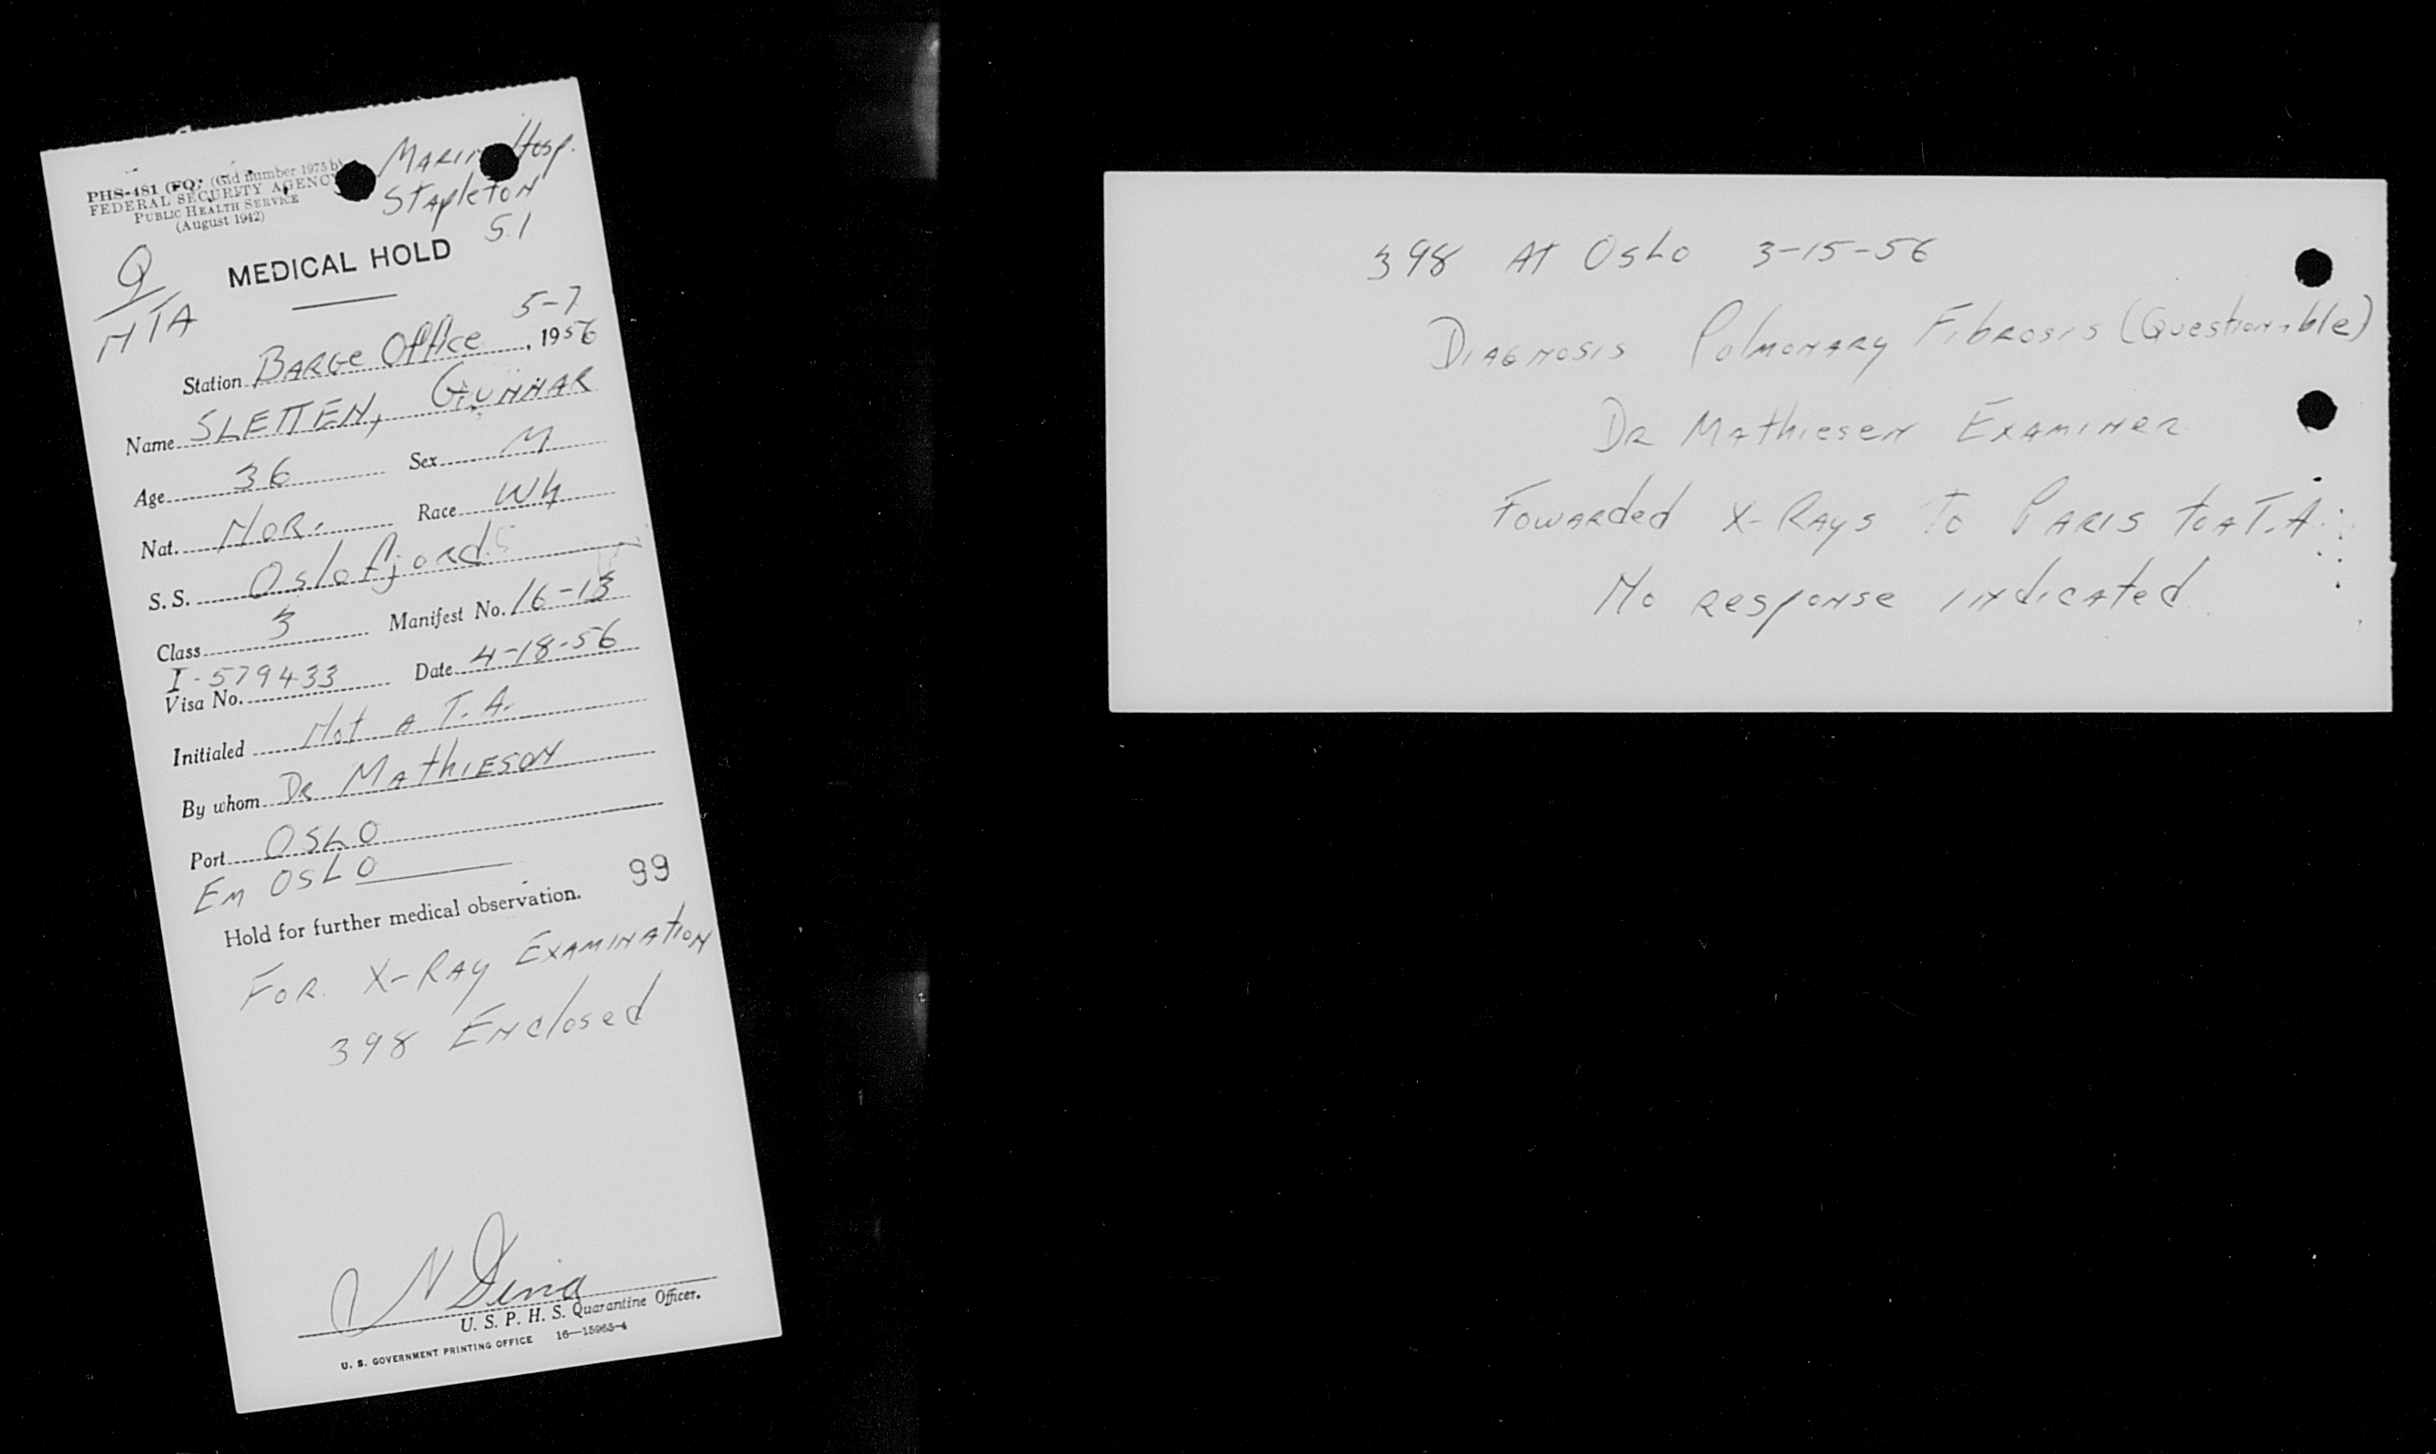 PHS-481 (FQ) (Old number 1975 b)
FEDERAL SECURITY AGENCY
PUBLIC HEALTH SERVICE
(August 1942)
Marine Hosp.
Stapleton
S.I
Q
NTA
MEDICAL HOLD
5-7
Station Barge Office, 1956
Name SLETTEN, GUNNAR
Age 36 Sex M
Nat. NOR. Race Wh
S. S. Oslofjord
Class 3 Manifest No. 16-13
I-579433
Visa No. Date 4-18-56
Initialed Not a T.A.
By whom Dr Mathieson
Port OSLO
Em OSLO
99
Hold for further medical observation.
For X-Ray Examination
398 Enclosed
U. S. P. H. S. Quarantine Officer.
U. S. GOVERNMENT PRINTING OFFICE 16—15965-4
398 At Oslo 3-15-56
Diagnosis Pulmonary Fibrosis (Questionable)
Dr Mathiesen Examiner
Fowarded X-Rays To Paris to a T.A.
No response indicated